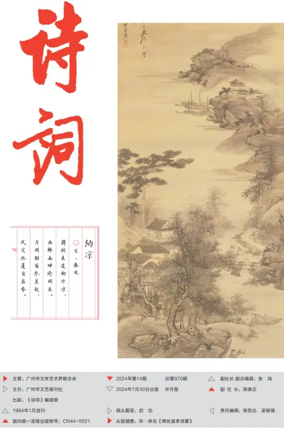 诗词
纳凉
宋·秦观
携杖来追柳外凉，
画桥南畔倚胡床。
月明船笛参差起，
风定池莲自在香。
主管：广州市文学艺术界联合会
主办：广州市文艺报刊社
出版：《诗词》编辑部
1984年1月创刊
国内统一连续出版物号：CN44-0021
2024年第14期
总第970期
2024年7月30日出版
半月报